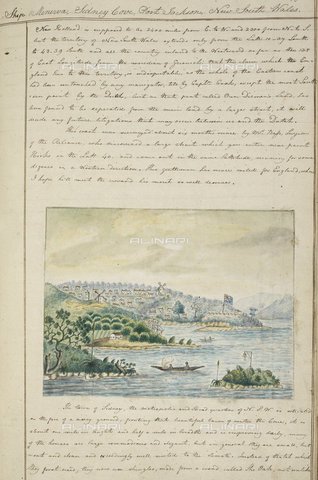 Ship Minerva Sidney Cove Port Jackson New South Wales.
New Holland is supposed to be 2400 miles from E. to W. and 2300 from N. to S.
but the territory of New South Wales extends only from the Latt. 10..37 South
to 43..39 South and all the country inland to the Westward as far as the 135
of East Longitude from the meridian of Greenwich that the claim which En-
gland has to this territory, is indisputable, as the whole of the Eastern coast
had been unknown by any navigator, 'till by Capt. Cook, except the most South-
ern point by the Dutch, and as that part called Van Diemens Land has
been found to be separated from the main land by a large strait, it will
made any future litigations that may arise between us and the Dutch.
This coast was surveyed about six months since by Mr. Bass, Surgeon
of the Reliance, who discovered a large strait which you enter near point
Hicks in the Latt. 40. and come out in the same Latitude running for some
degrees in a Western direction. This gentleman has since sailed for England, where
I hope he'll meet the reward his merit so well deserves.
ALINARI
ALINARI
The town of Sidney, the metropolis and Head quarters of N. S. W. is situated
on the top of a rising ground, fronting that beautiful haven of water the Cove, it is
about one mile in length and half a mile in breadth and increasing daily, many
of the houses are large commodious and elegant, but in general they are small, but
neat and clean and exceedingly well suited to the climate. Instead of thatch which
they first used, they now use shingles, made from a wood called She Oak, not unlike